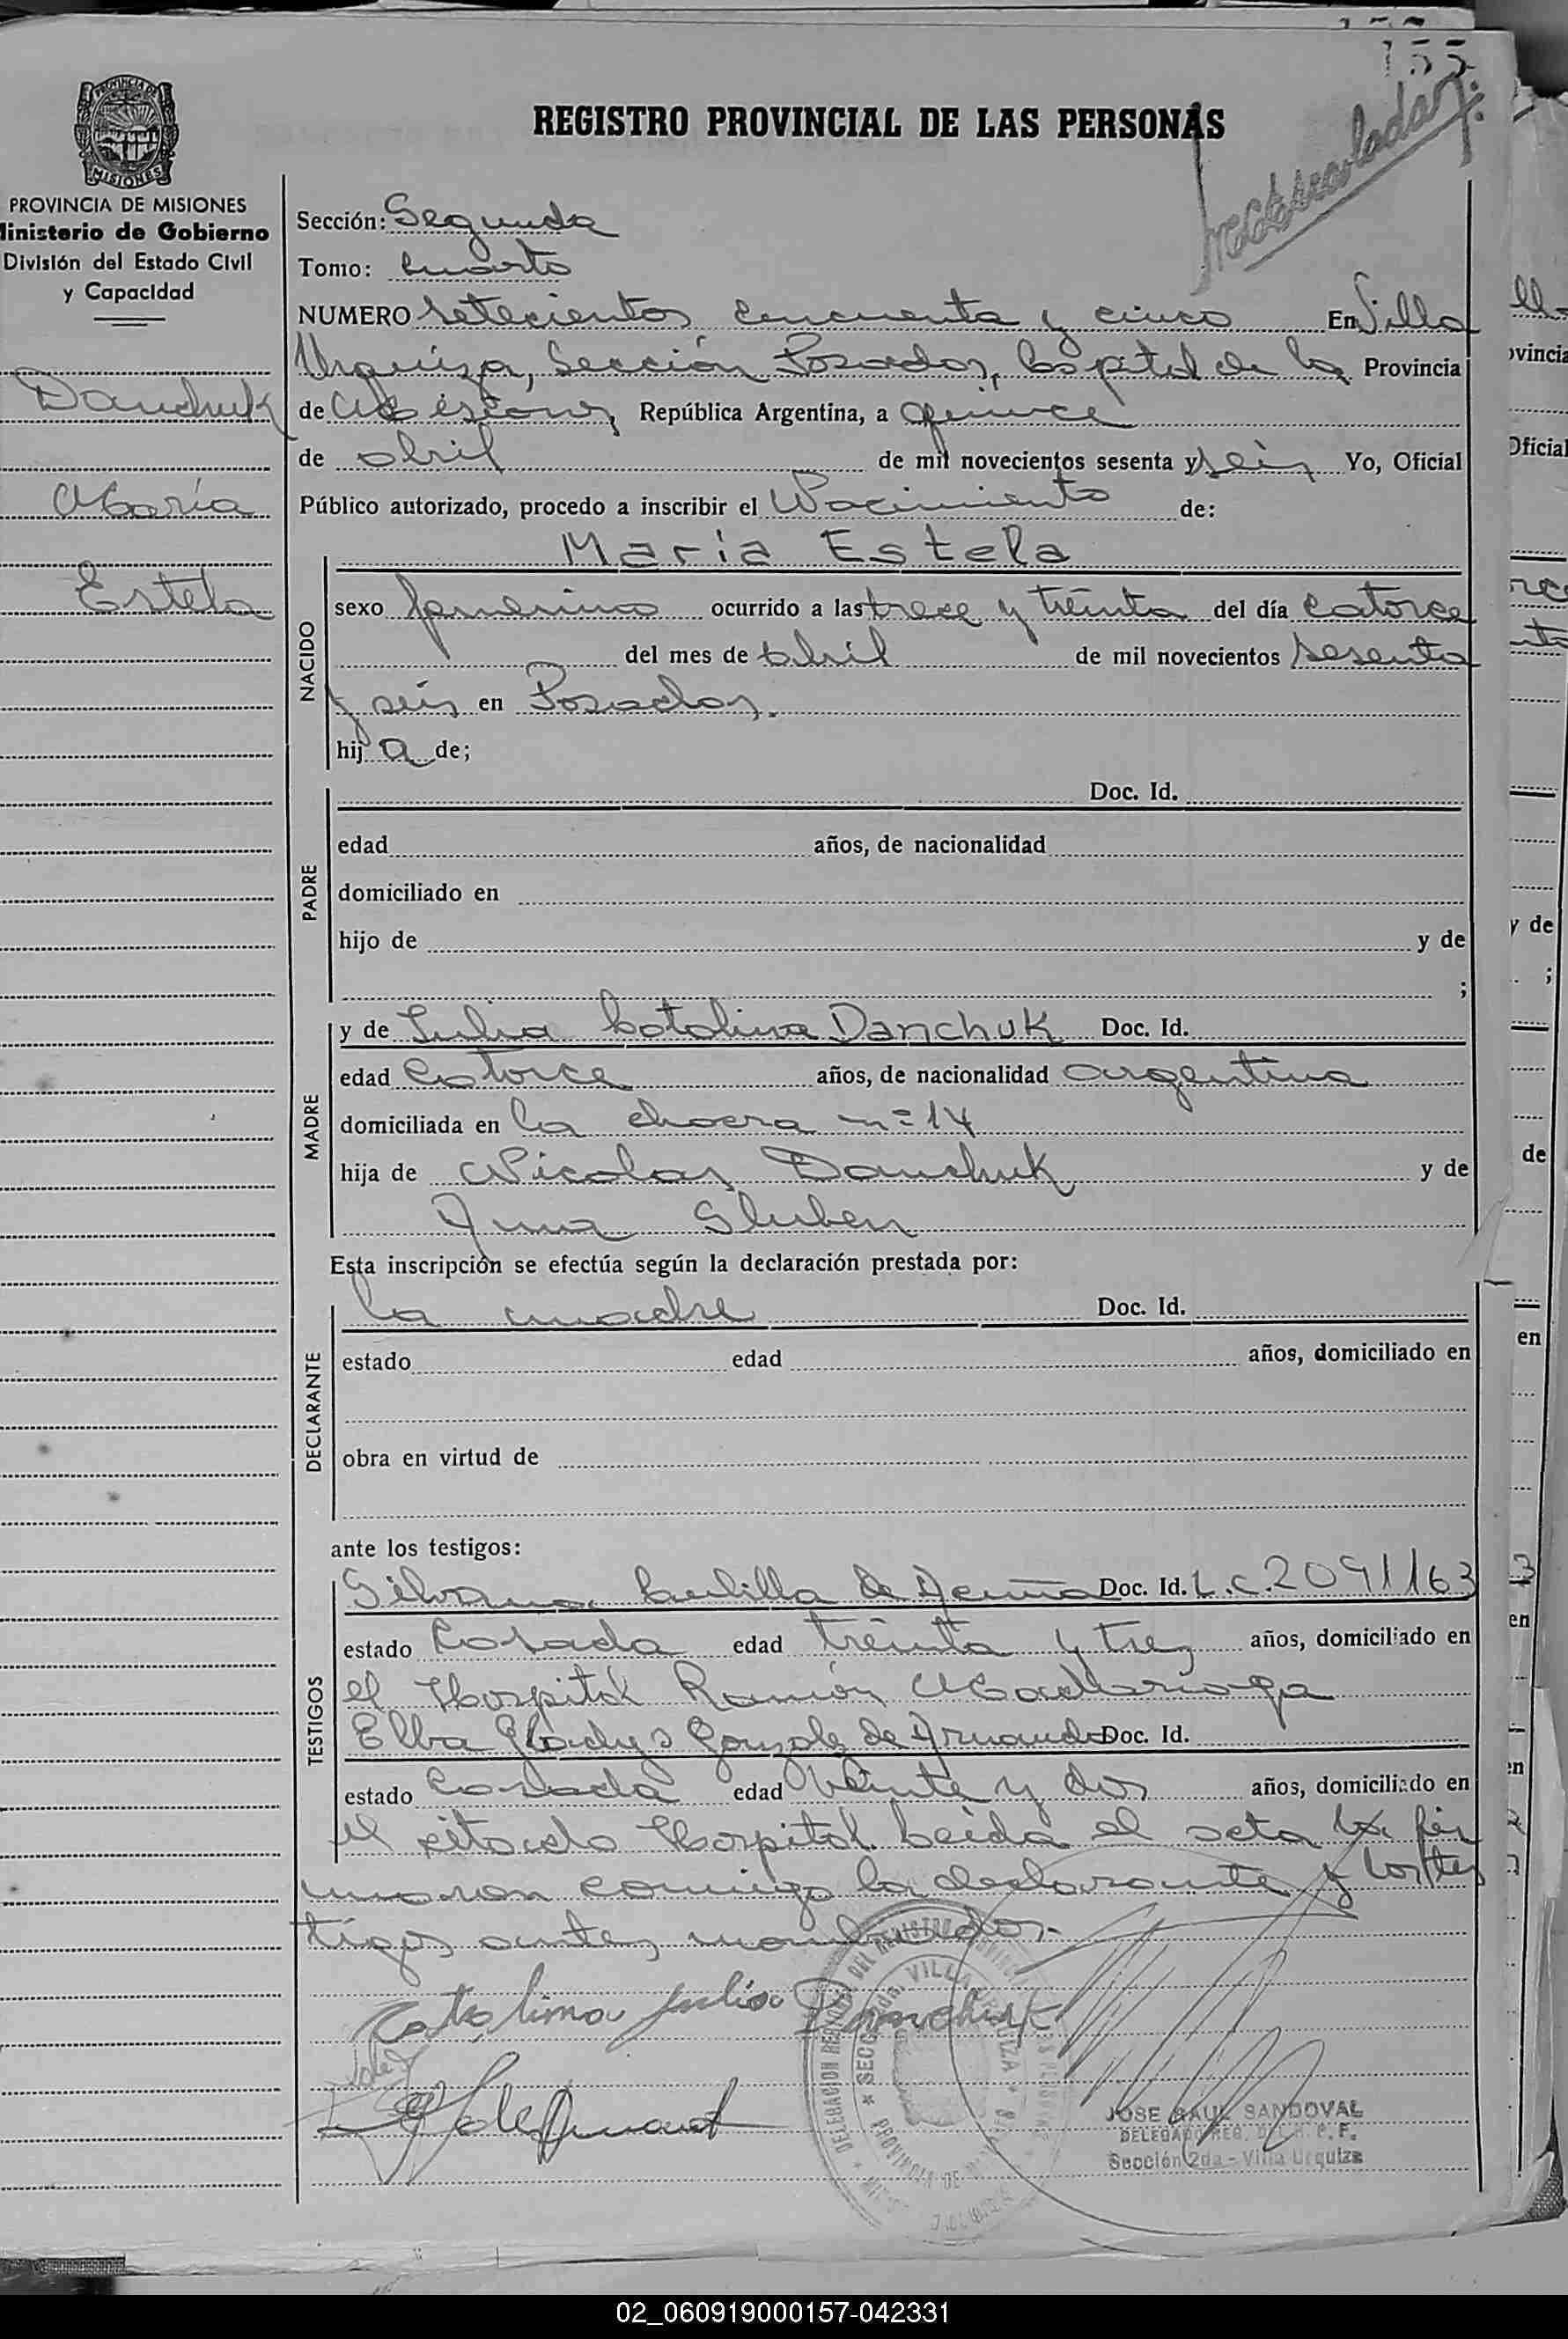 155
REGISTRO PROVINCIAL DE LAS PERSONAS
PROVINCIA DE
MISIONES
PROVINCIA DE MISIONES
Ministerio de Gobierno
División del Estado Civil
y Capacidad
Danchuk
María
Estela
Sección: Segunda
Tomo: Cuarto
NUMERO Setecientos cincuenta y cinco En Villa
Urquiza, Sección Posadas, Capital de la Provincia
de Misiones, República Argentina, a quince
de abril de mil novecientos sesenta y seis Yo, Oficial
Público autorizado, procedo a inscribir el Nacimiento de:
NACIDO
María Estela
sexo femenino ocurrido a las trece y treinta del día catorce
del mes de abril de mil novecientos sesenta
y seis en Posadas.
hija de;
PADRE
Doc. Id.
edad años, de nacionalidad
domiciliado en
hijo de y de
;
MADRE
y de Julia Catalina Danchuk Doc. Id.
edad Catorce años, de nacionalidad argentina
domiciliada en la chacra nº 14
hija de Nicolas Danchuk y de
Ana
Esta inscripción se efectúa según la declaración prestada por:
DECLARANTE
la madre Doc. Id.
estado edad años, domiciliado en
obra en virtud de
ante los testigos:
TESTIGOS
Silvana de Acuña Doc. Id. L.C. 2091163
estado Casada edad treinta y tres años, domiciliado en
el Hospital Ramón Madariaga
Elba Gladys Gonzalez de Doc. Id.
estado Casada edad Veinte y dos años, domiciliado en
el citado Hospital. Leida el acta la fir
maron conmigo la declarante y los tes
tigos antes nombrados.-
Catalina Julia Danchuk
JOSE RAUL SANDOVAL
DELEGADO REG. DEL R. P. F.
Sección 2da - Villa Urquiza
02_060919000157-042331